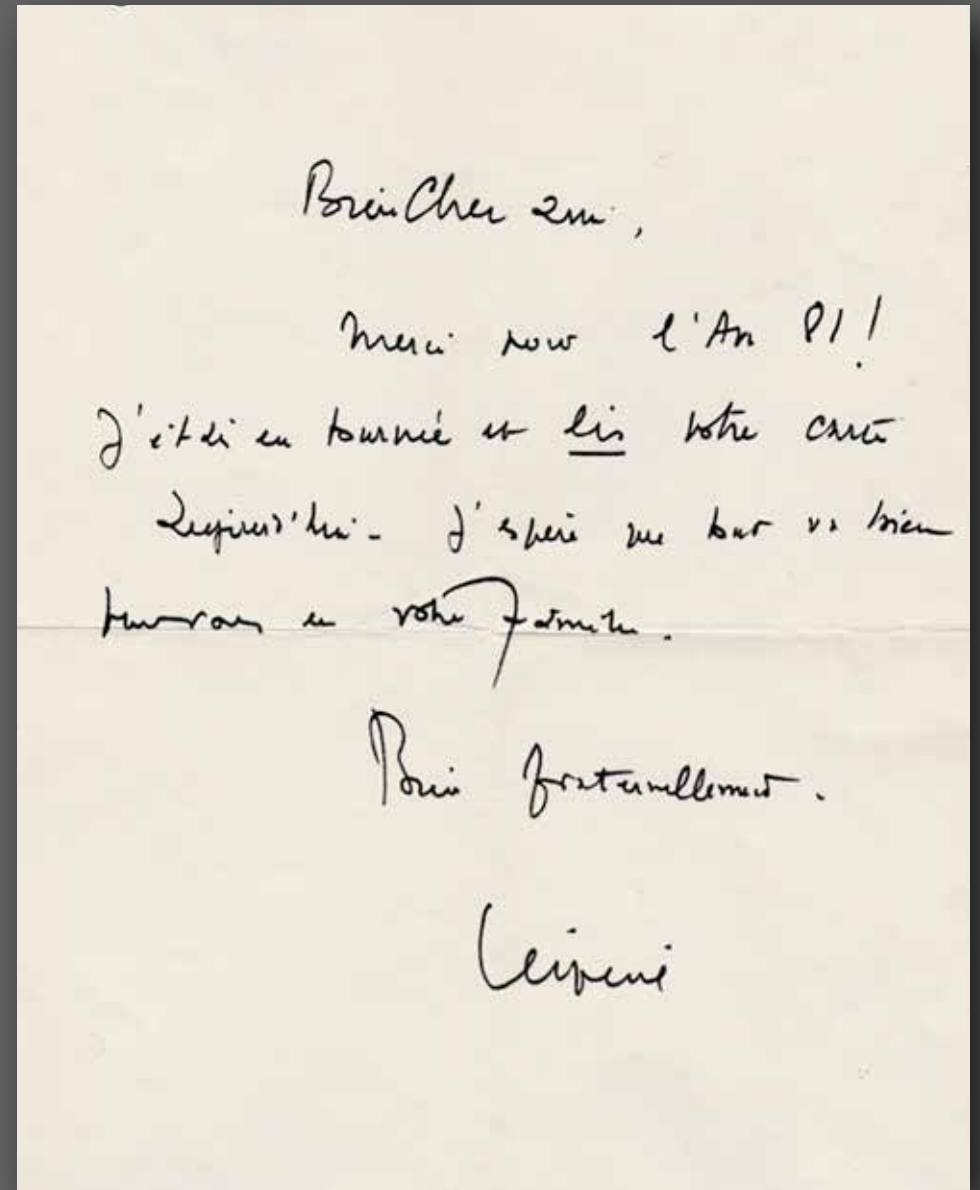 Bien Cher ami,
Merci pour l'An 81!
J'étais en tournée et lis votre carte
aujourd'hui - J'espère que tout va bien
pour vous en votre famille.
Bien fraternellement.